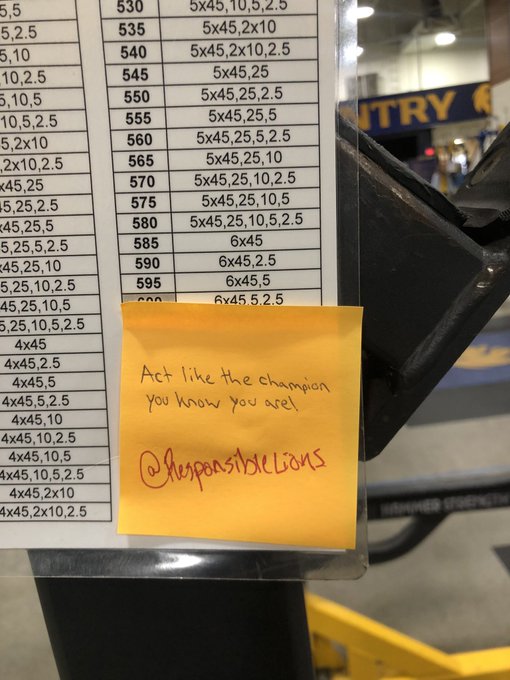 5,5
5,2.5
5,10
10,2.5
5,10,5
10,5,2.5
5,2x10
2x10,2.5
x45,25
45,25,2.5
x45,25,5
5,25,5,2.5
x45,25,10
5,25,10,2.5
45,25,10,5
5,25,10,5,2.5
4x45
4x45,2.5
4x45,5
4x45,5,2.5
4x45,10
4x45,10,2.5
4x45,10,5
4x45,10,5,2.5
4x45,2x10
4x45,2x10,2.5
530 5x45,10,5,2.5
535 5x45,2x10
540 5x45,2x10,2.5
545 5x45,25
550 5x45,25,2.5
555 5x45,25,5
560 5x45,25,5,2.5
565 5x45,25,10
570 5x45,25,10,2.5
575 5x45,25,10,5
580 5x45,25,10,5,2.5
585 6x45
590 6x45,2.5
595 6x45,5
600 6x45,5,2.5
Act like the champion
you know you are!
@ResponsibleLions
NTRY
HAMMER STRENGTH